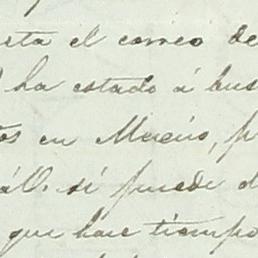 el correo de
ha estado á bus
tos en Mereió, p
si puede d
que hace tiempo